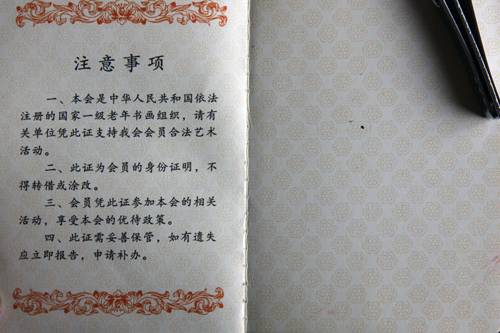 注意事项
一、本会是中华人民共和国依法
注册的国家一级老年书画组织，请有
关单位凭此证支持我会会员合法艺术
活动。
二、此证为会员的身份证明，不
得转借或涂改。
三、会员凭此证参加本会的相关
活动，享受本会的优待政策。
四、此证需妥善保管，如有遗失
应立即报告，申请补办。